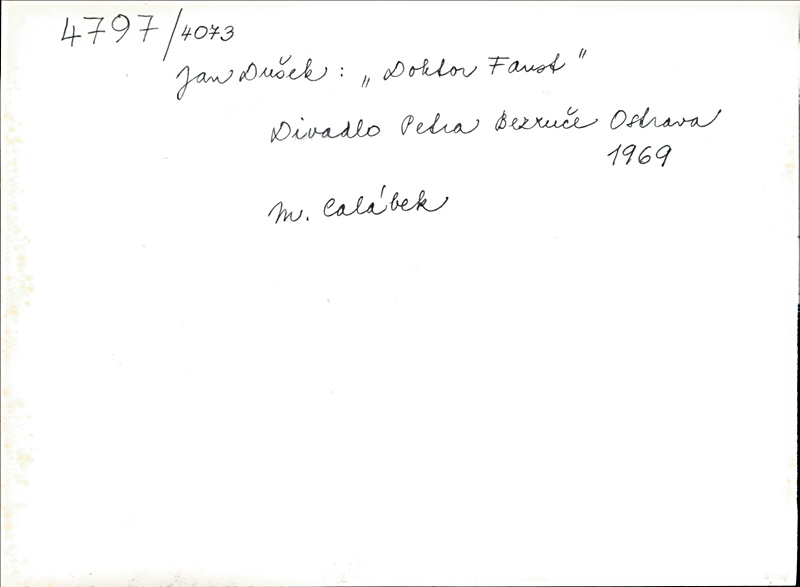 4797/4073
Jan Dušek: „Doktor Faust"
Divadlo Petra Bezruče Ostrava
1969
M. Calábek